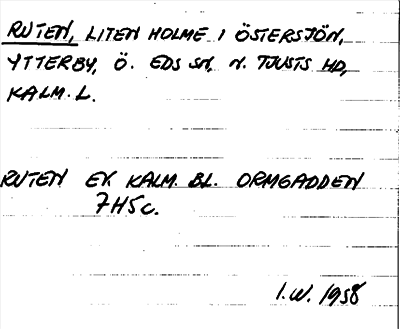 RUTEN, LITEN HOLME I ÖSTERSJÖN,
YTTERBY, Ö. EDS SN, N. TJUSTS HD,
KALM. L.
RUTEN EK KALM. BL. ORMGADDEN
7H5c.
I.W. 1958